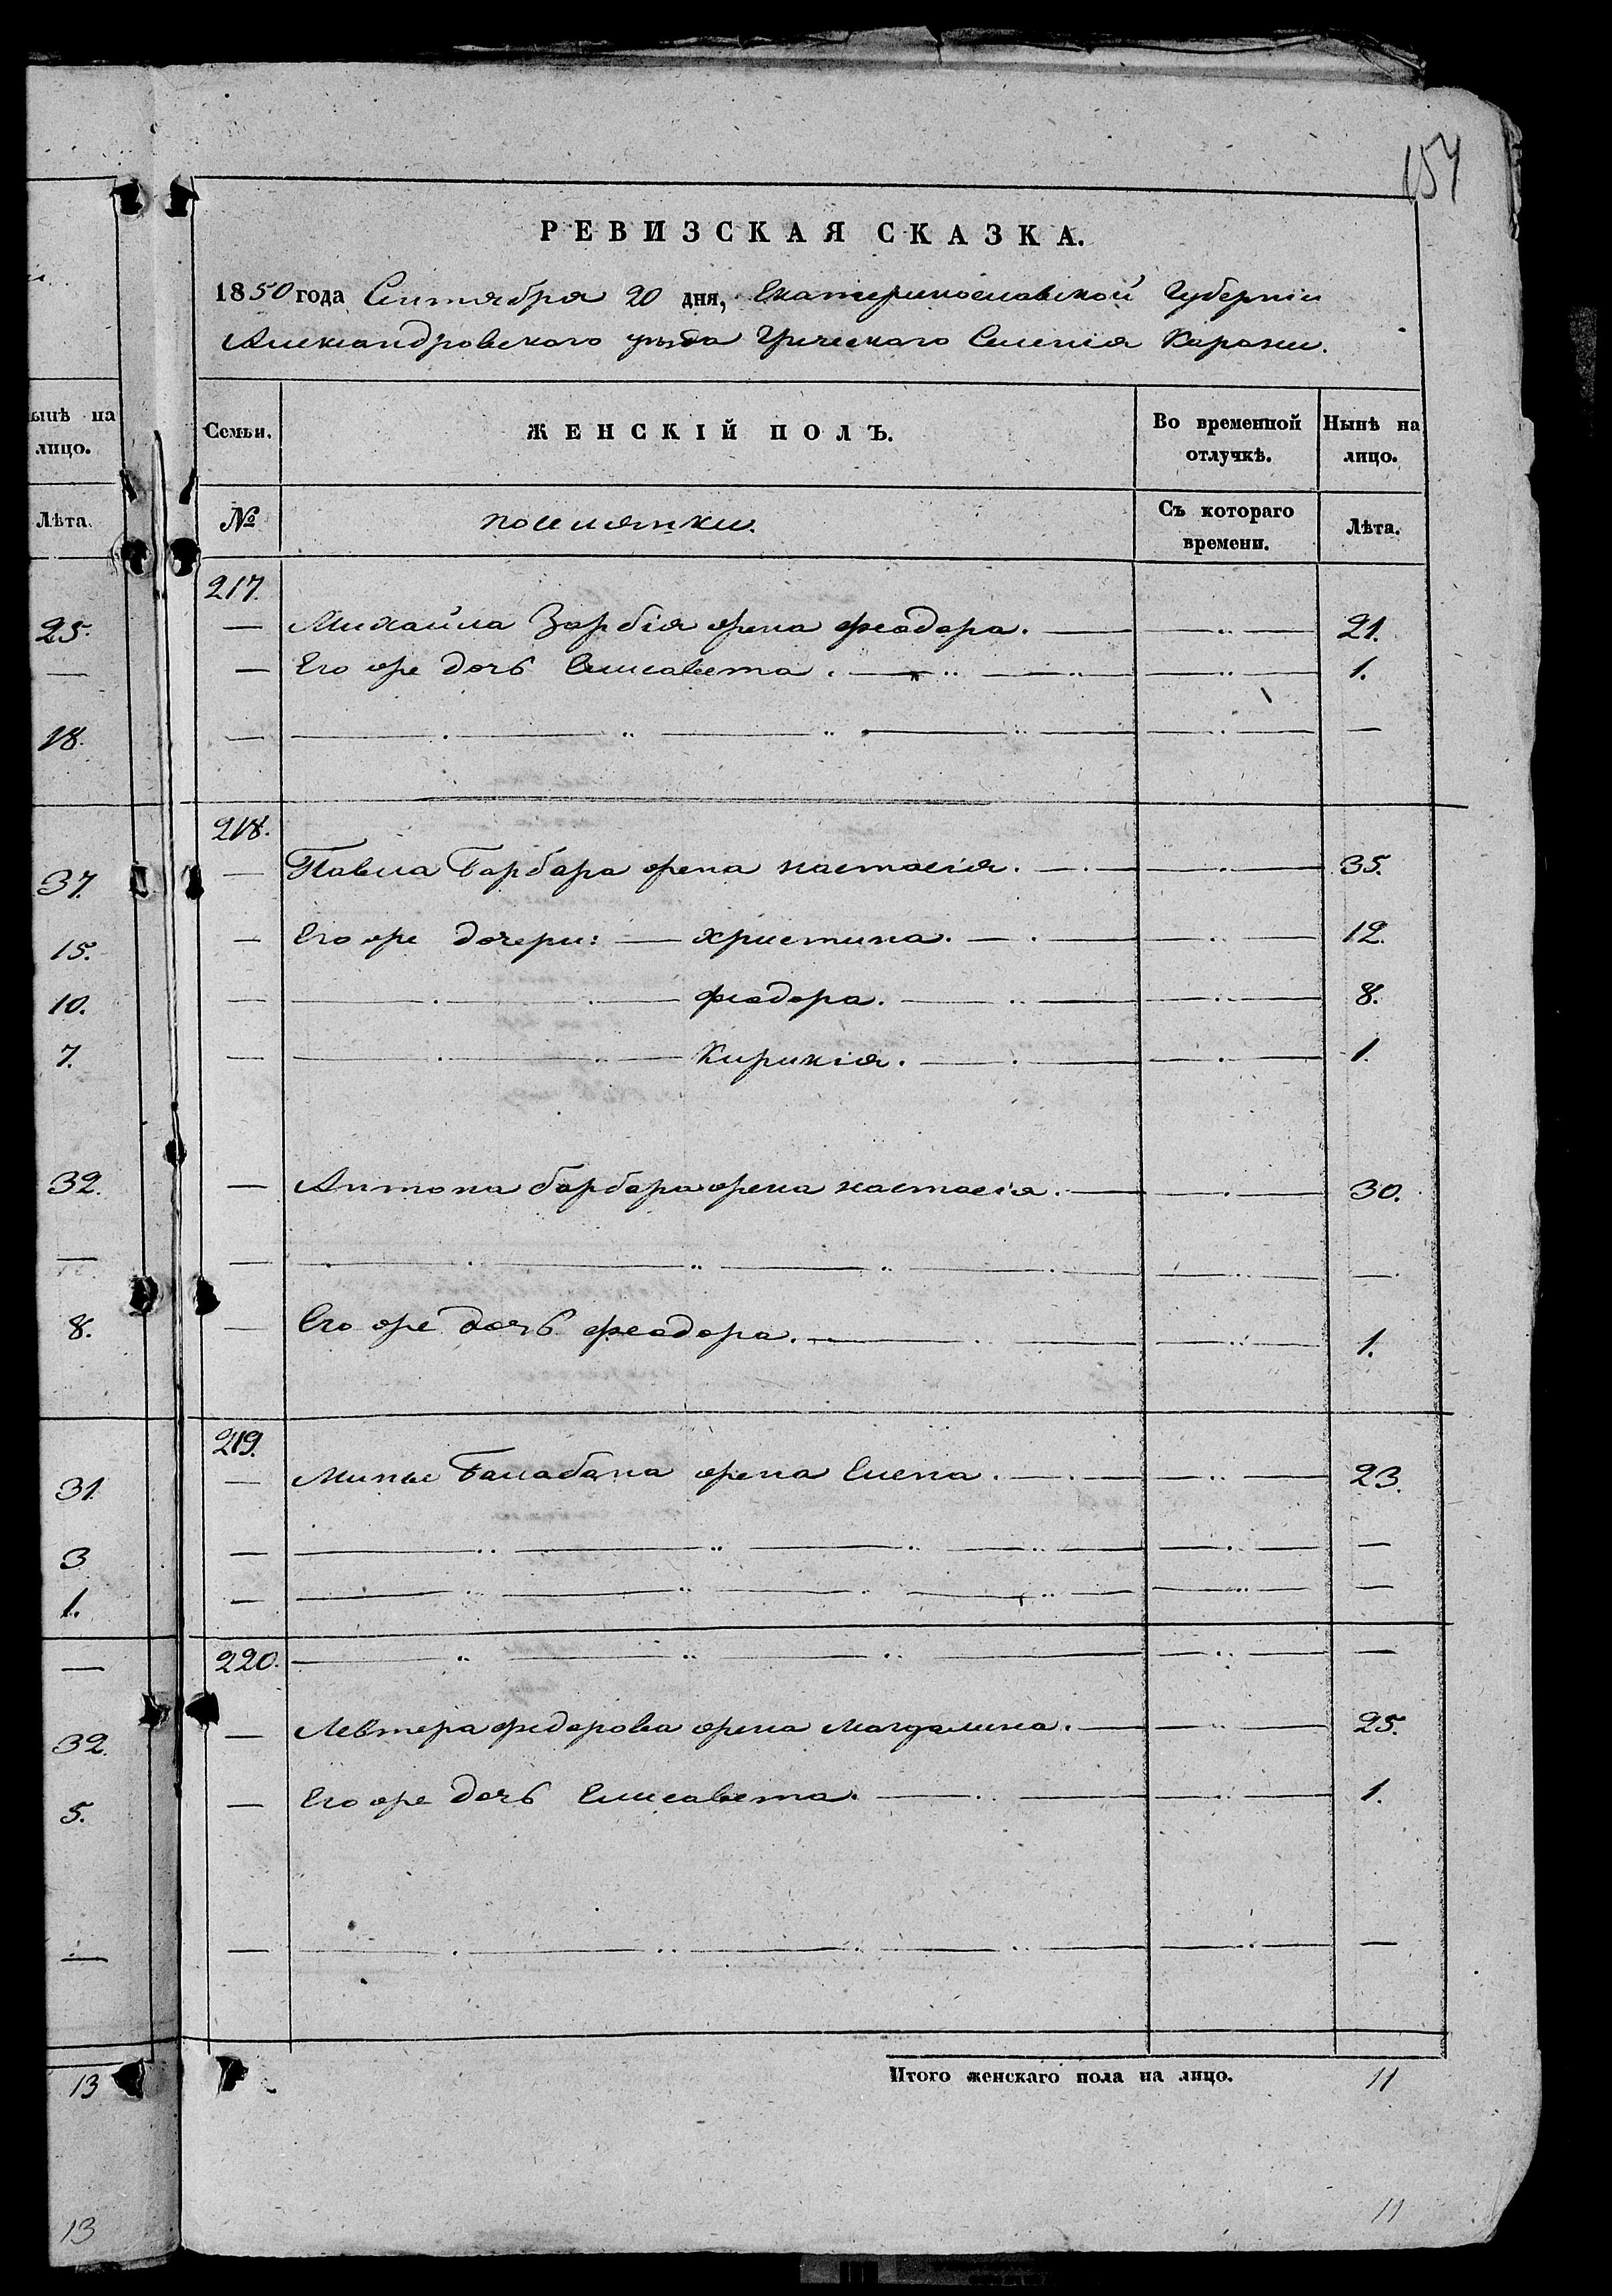 154
РЕВИЗСКАЯ СКАЗКА.
1850 года Сентября 20 дня, Екатеринославской Губерніи
Александровского уѣзда Греческаго Селенія Карани.
ынѣ на лицо.
Лѣта.
25.
—
18.
37.
15.
10.
7.
32.
—
8.
31.
3
1.
—
32.
5.
—
13
13
Семьи. ЖЕНСКІЙ ПОЛЪ. Во временной отлучкѣ. Нынѣ на лицо.
№ поселянки. Съ котораго времени. Лѣта.
217.
— Михайла Зарбія жена феодора. — 21.
— Его же дочь Елисавета. — 1.
218.
— Павла Барбара жена настасія. — 35.
— Его же дочери: — христина. — 12.
— феодора. — 8.
— Кирикія. — 1.
— Антона барбара жена настасія. — 30.
— Его же дочь феодора. — 1.
219.
— Мины Балабана жена Елена. — 23.
220.
— Левтера федорова жена магдалина. — 25.
— Его же дочь Елисавета. — 1.
Итого женскаго пола на лицо. 11
11